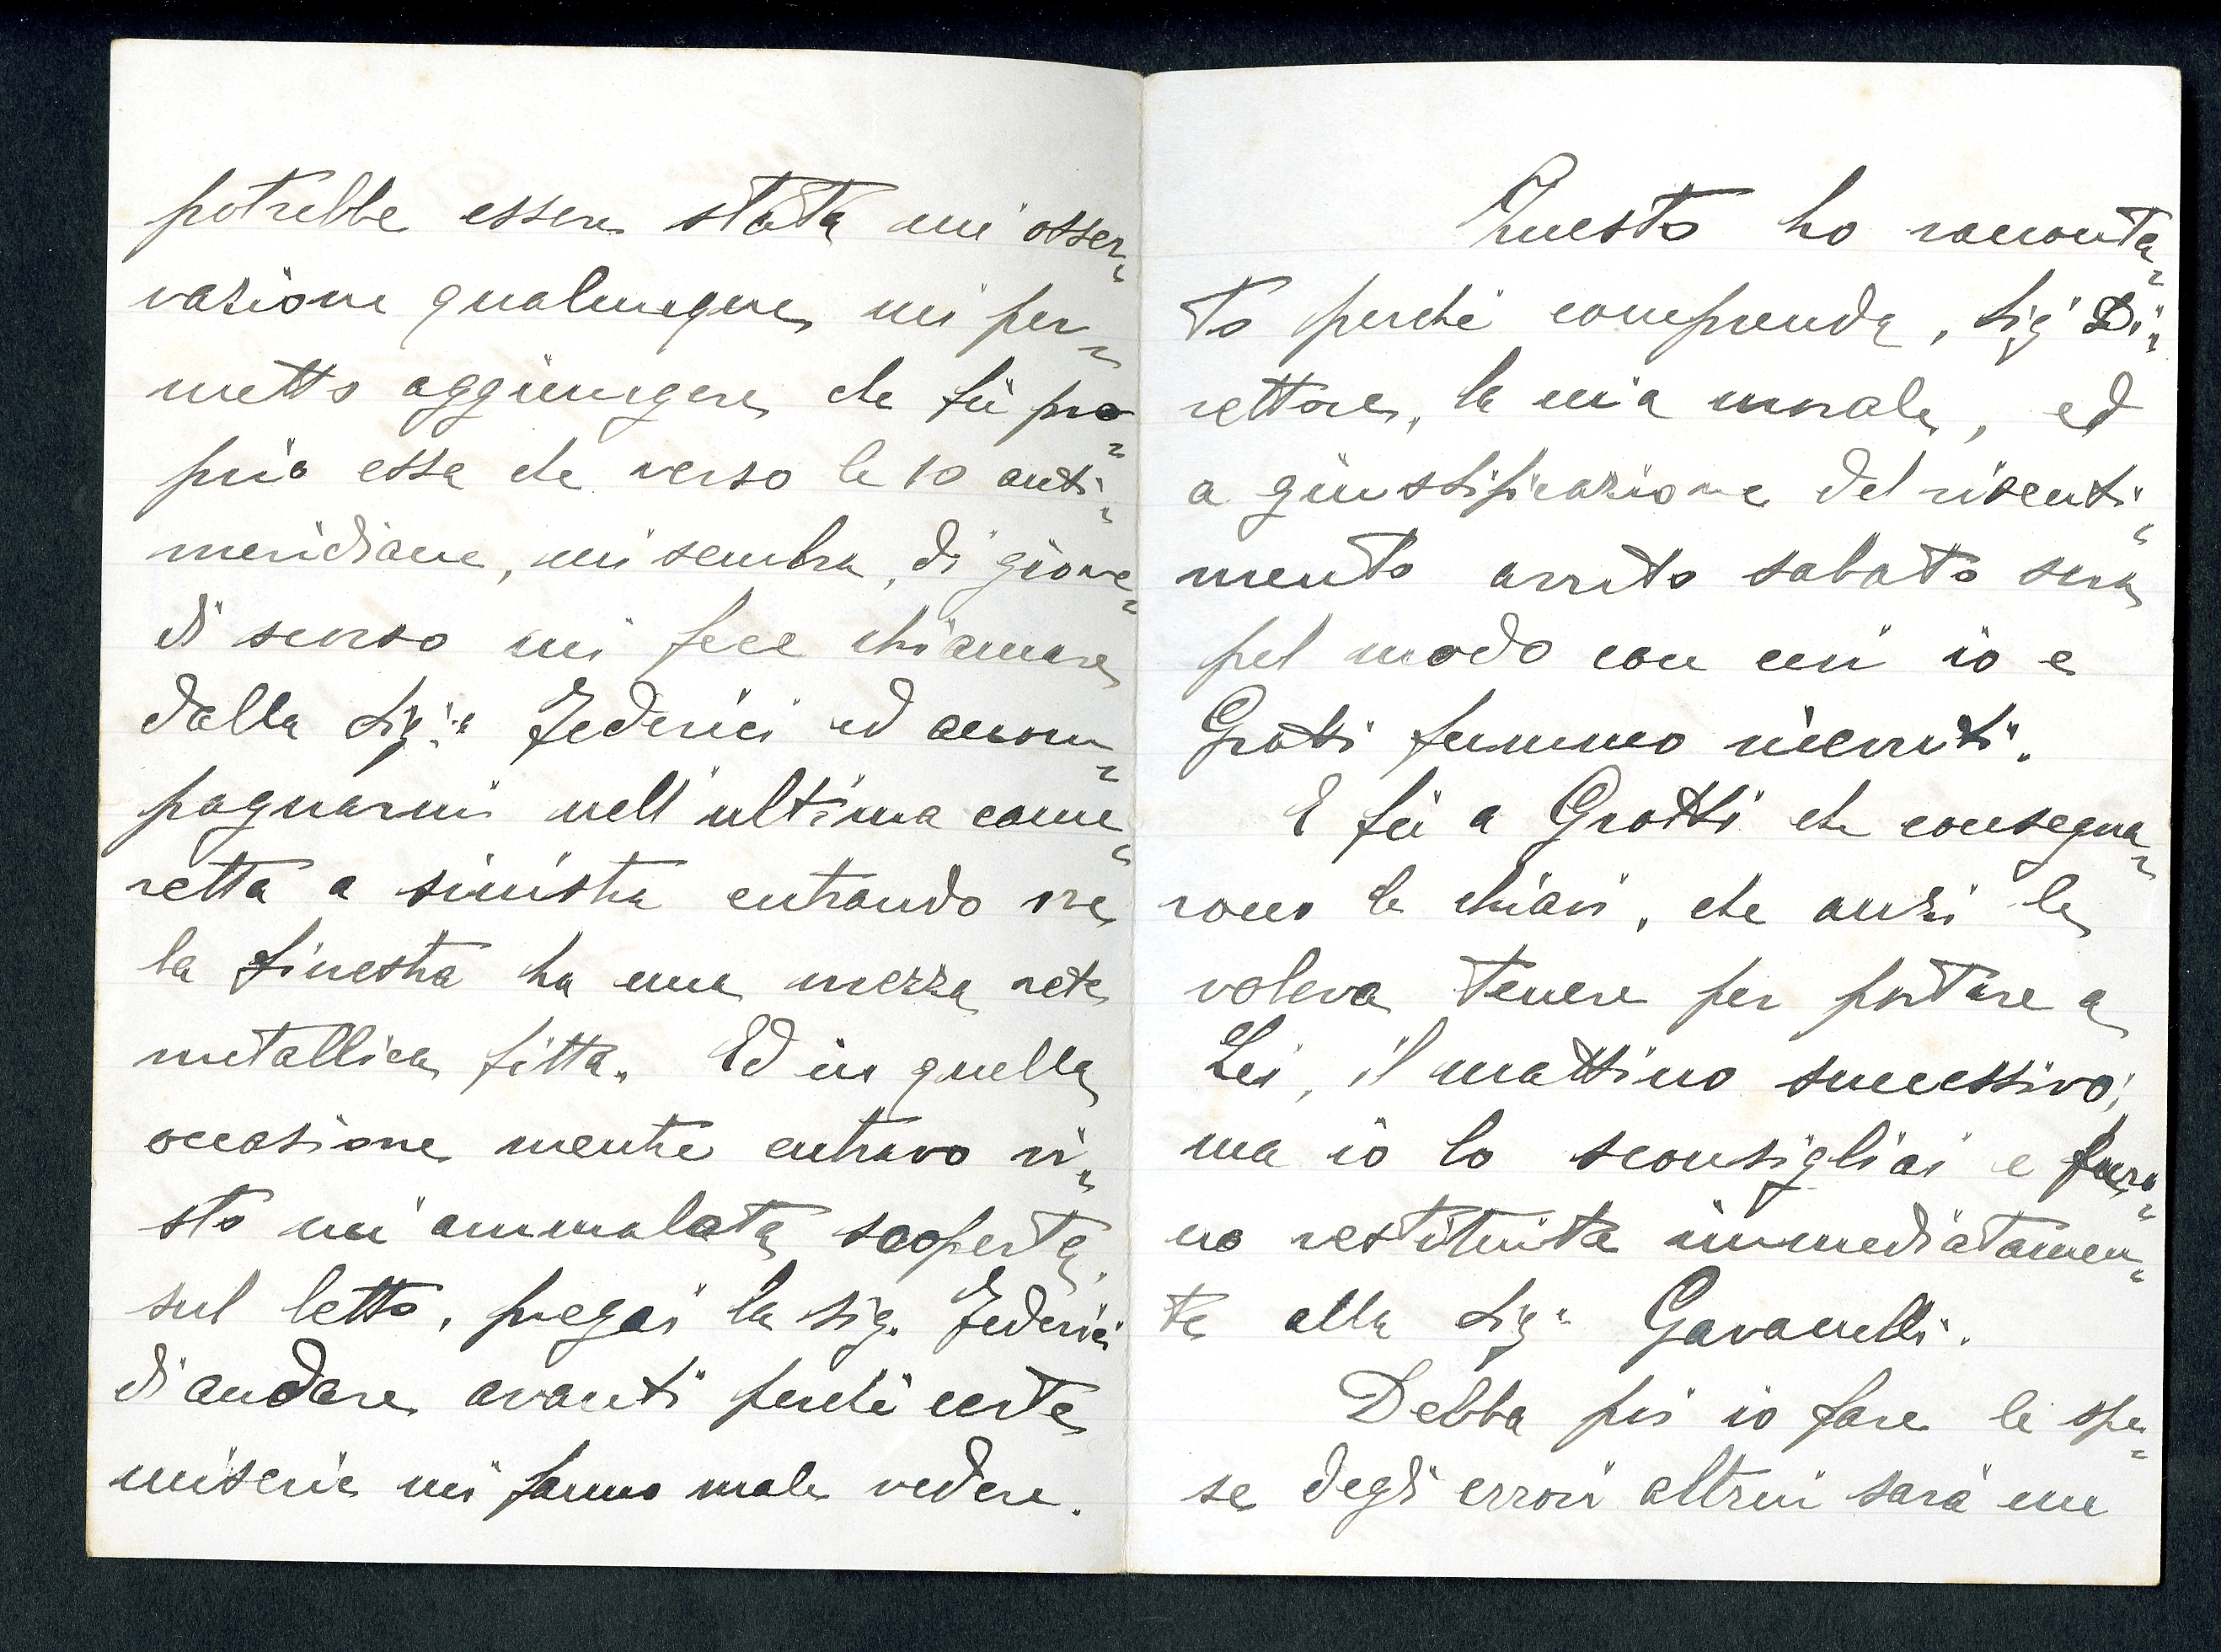 potrebbe essere stata un'osser„
vazione qualunque, mi per„
metto aggiungere che fù pro„
prio essa che verso le 10 anti„
meridiane, mi sembra, di giove„
dì scorso mi fece chiamare
dalla Sig.ª Federici ed accom„
pagnarmi nell'ultima came„
retta a sinistra entrando ove
la finestra ha una mezza rete
metallica fitta. Ed in quella
occasione mentre entravo vi„
sto un'ammalata scoperta
sul letto, pregai la Sig. Federici
di andare avanti perchè certe
miserie mi fanno male vedere.
Questo ho racconta„
to perchè comprenda, Sig. Di„
rettore, la mia morale, ed
a giustificazione del risenti„
mento avuto sabato sera
pel modo con cui io e
Grotti fummo ricevuti.
E fù a Grotti che consegna„
rono le chiavi, che anzi le
voleva tenere per portare a
Lei, il mattino successivo;
ma io lo sconsigliai e furo„
no restituite immediatamen„
te alla Sig.ª Gavanelli.
Debba poi io fare le spe„
se degli errori altrui sarà un